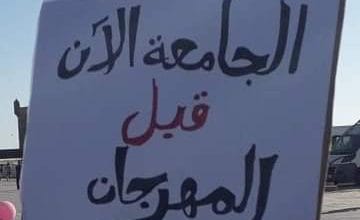 الجامعة الآن
قبل
المهرجان